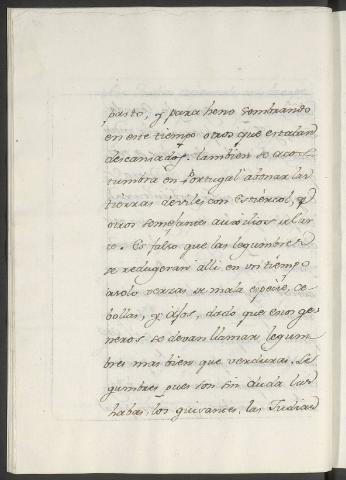 pasto, y para heno sembrando
en este tiempo otros que estaban
descansados. Tambien se acos-
tumbra en Portugal abonar las
tierras deviles con Estiercol, y
otros semejantes auxilios del ar-
te. Es falso que las legumbres
se redugeran alli en un tiempo
asolo verzas de mala especie, ce-
bollas, y ajos, dado que esos ge-
neros se devan llamar legum-
bres mas bien que verduras. Le-
gumbres pues son sin duda las
habas, los guisantes, las Judias